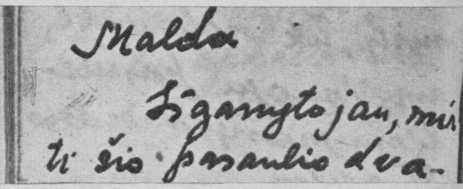 Malda
Išganytojau, mir
ti šio pasaulio dva-